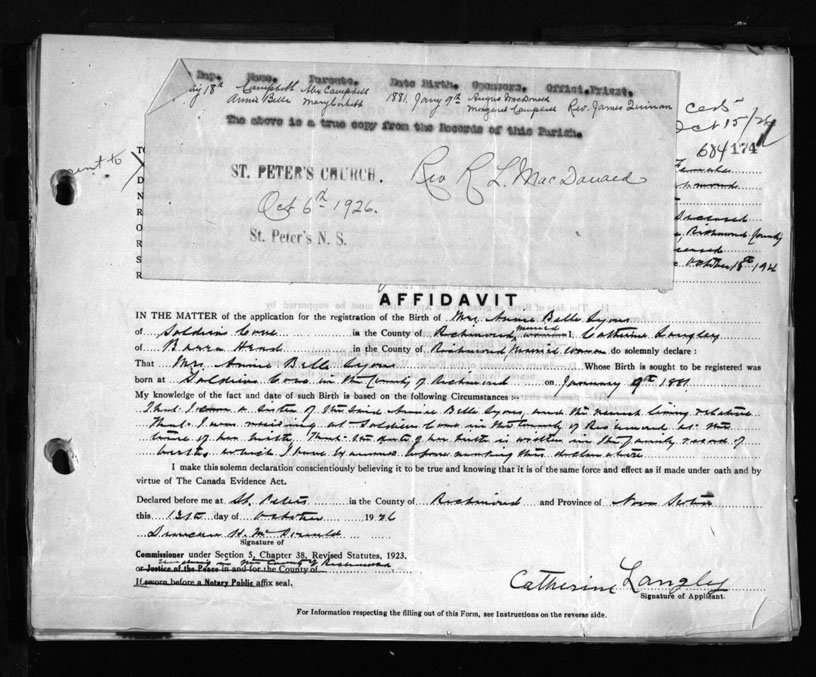 Bap. Name. Parents. Date Birth. Sponsors. Offici. Priest.
18th Campbell Alex Campbell 1881 Jany 9th Angus MacDonald
Annie Belle Mary Margaret Campbell Rev. James Quinan
The above is a true copy from the Records of this Parish.
ST. PETER'S CHURCH. Rev R L. MacDonald
Oct 6th 1926.
St. Peter's N. S.
Oct 15/26
684174
sent to
TO
Female
D
N
R Deceased
O Richmond County
R
S
R October 18th 1926
AFFIDAVIT
IN THE MATTER of the application for the registration of the Birth of Mrs. Annie Belle Lyons
of Soldiers Cove in the County of Richmond, married woman I, Catherine Langley
of Barra Head in the County of Richmond, Married Woman do solemnly declare:
That Mrs. Annie Belle Lyons Whose Birth is sought to be registered was
born at Soldiers Cove in the County of Richmond on January 9th 1881
My knowledge of the fact and date of such Birth is based on the following Circumstances :-
That I am a sister of the said Annie Belle Lyons, and the nearest living relative
That I was residing at Soldiers Cove in the County of Richmond at the
time of her birth, That the date of her birth is written in the family record of
births, which I have examined before making this declaration
I make this solemn declaration conscientiously believing it to be true and knowing that it is of the same force and effect as if made under oath and by
virtue of The Canada Evidence Act.
Declared before me at St. Peters in the County of Richmond and Province of Nova Scotia
this 13th day of October 1926
Duncan H. McDonald
Signature of
Commissioner under Section 5, Chapter 38, Revised Statutes, 1923.
in the County of Richmond
or Justice of the Peace in and for the County of
If sworn before a Notary Public affix seal.
Catherine Langley
Signature of Applicant.
For Information respecting the filling out of this Form, see Instructions on the reverse side.